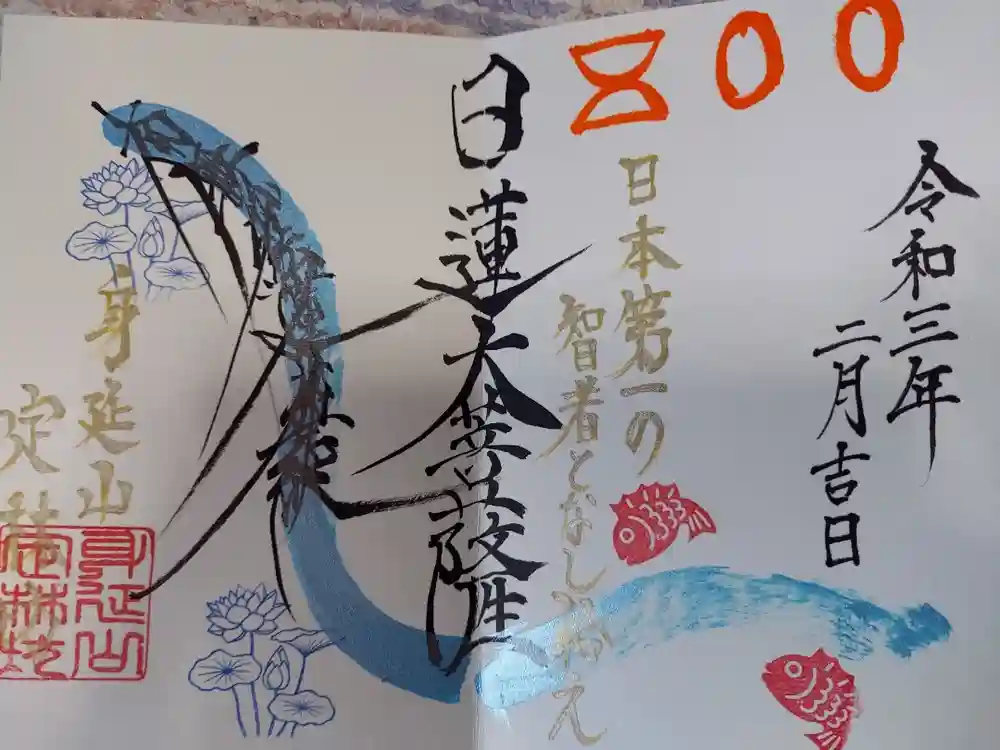 800
令和三年
二月吉日
日本第一の
智者となしたまえ
日蓮大菩薩
身延山
定林坊
身延山
定林坊